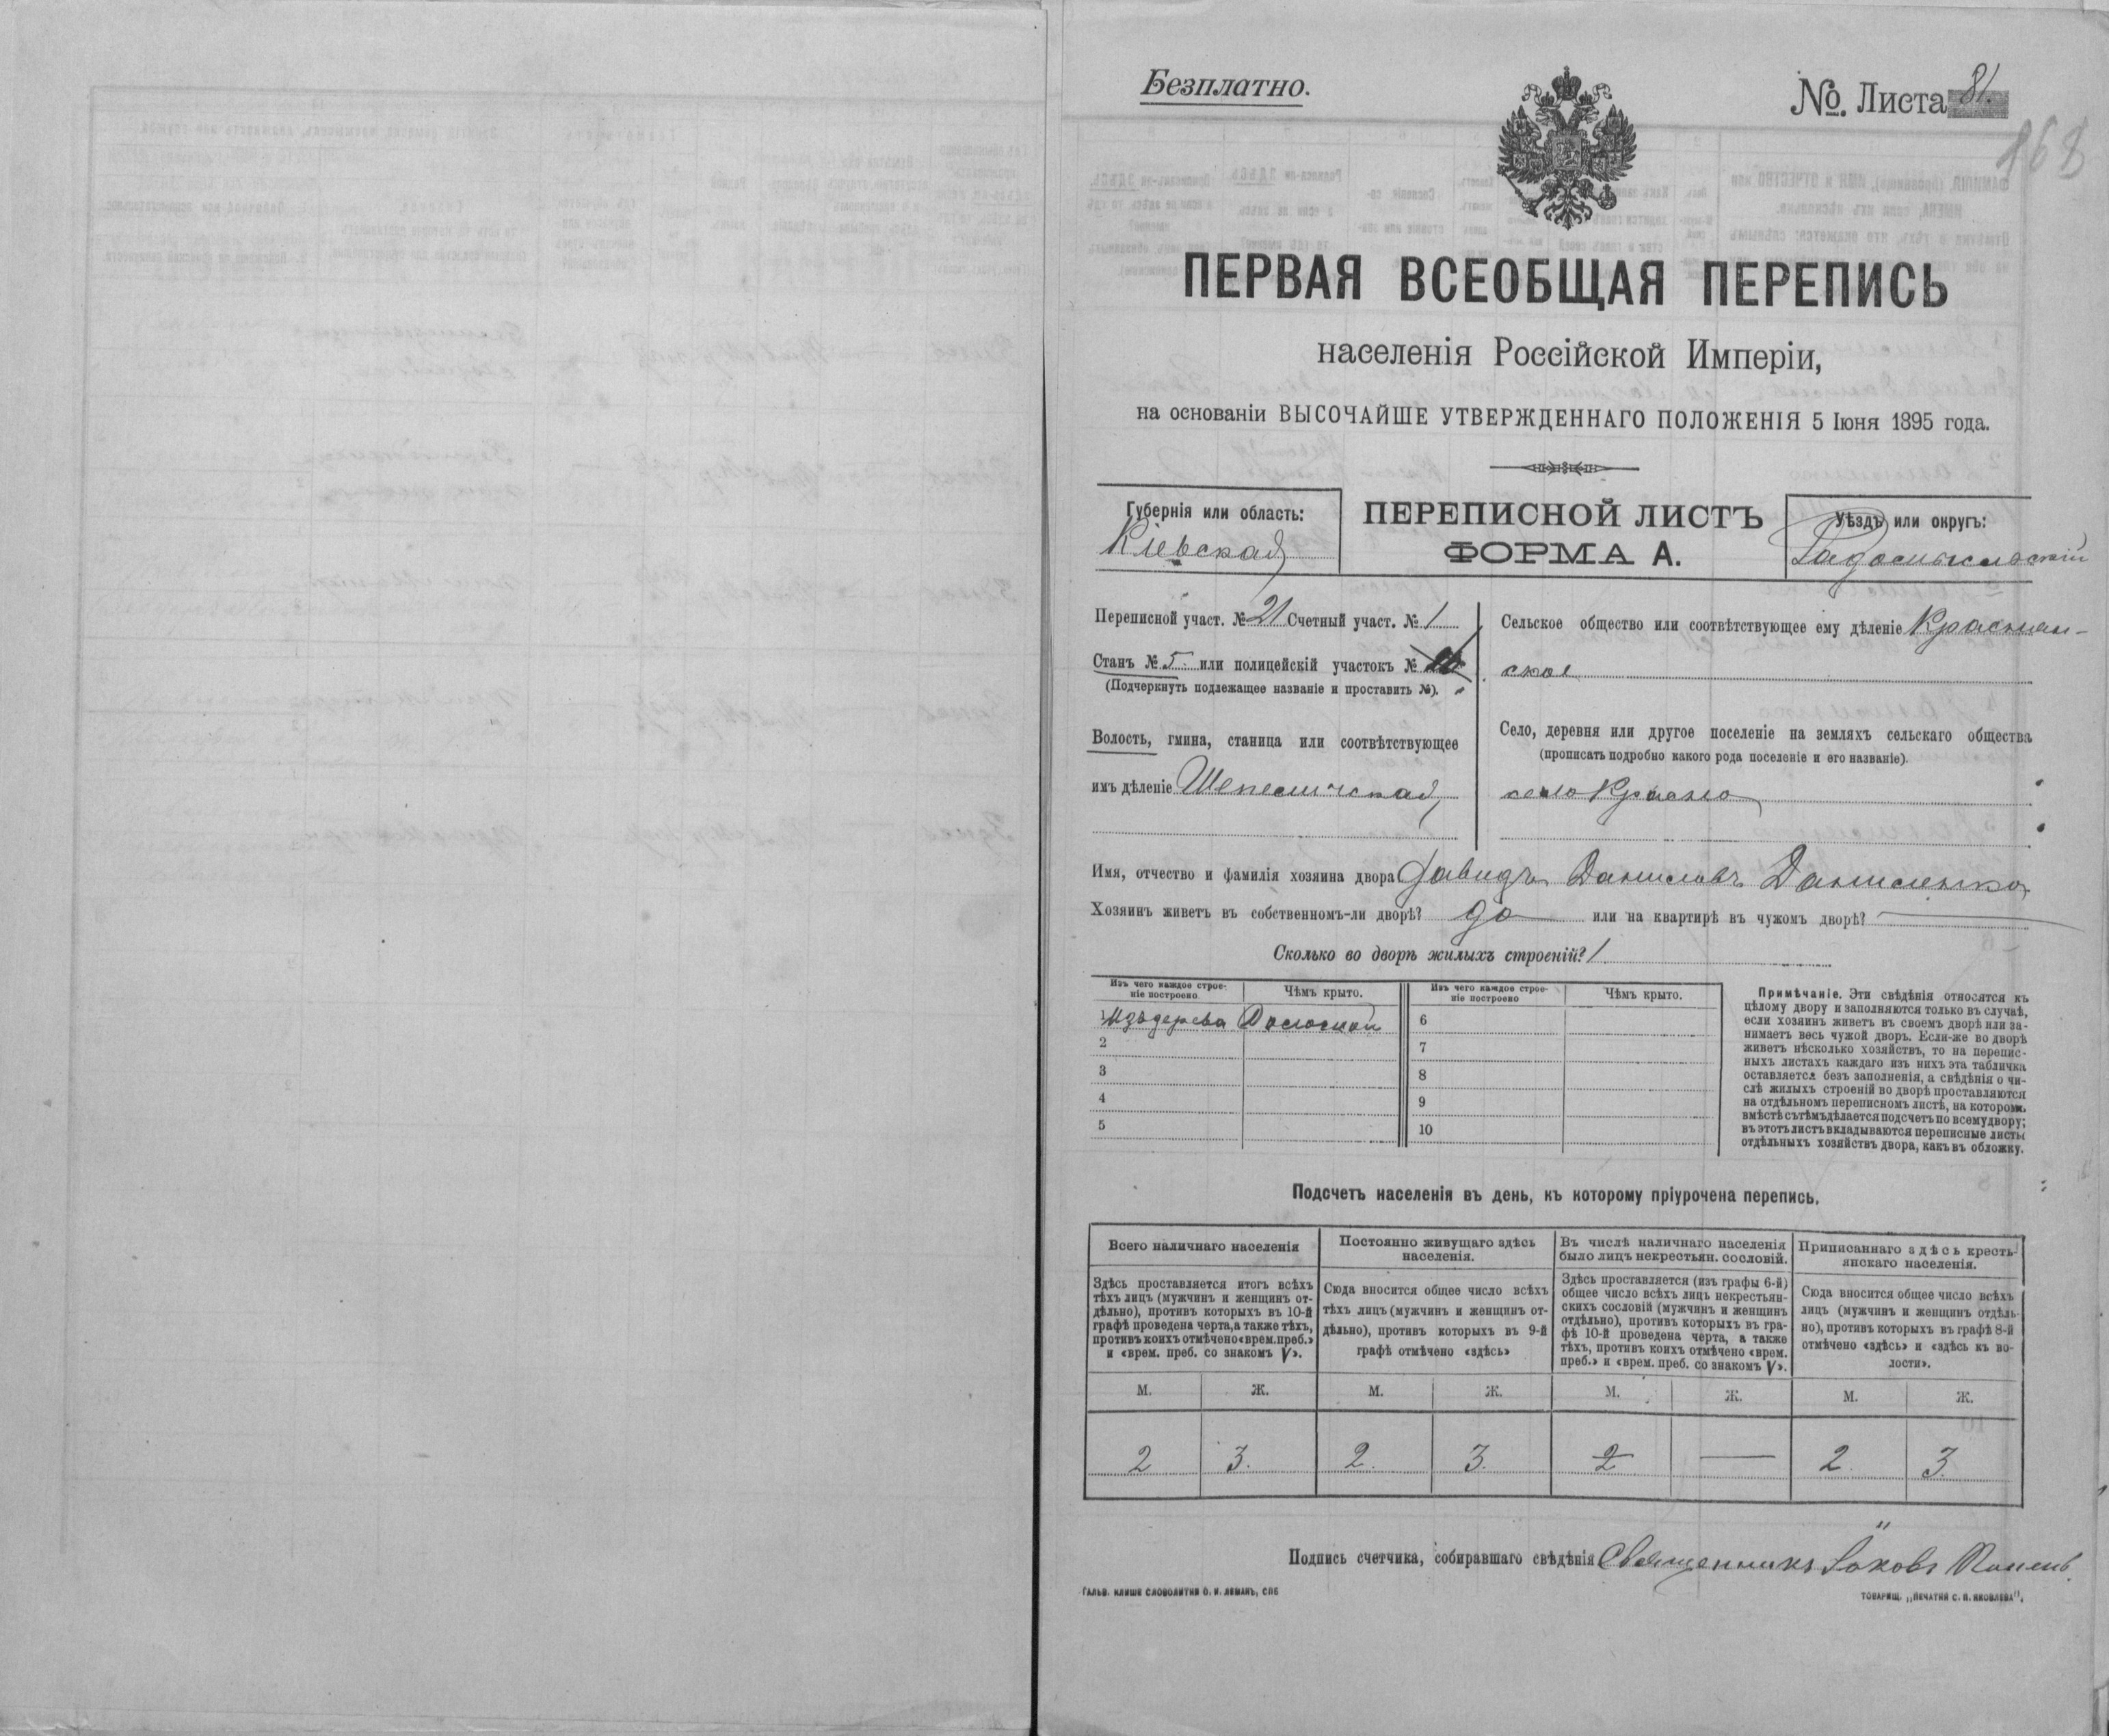 Безплатно.
№ Листа 81.
168
ПЕРВАЯ ВСЕОБЩАЯ ПЕРЕПИСЬ
населенія Россійской Имперіи,
на основаніи ВЫСОЧАЙШЕ УТВЕРЖДЕННАГО ПОЛОЖЕНІЯ 5 Іюня 1895 года.
Губернія или область:
Кіевская
ПЕРЕПИСНОЙ ЛИСТЪ
ФОРМА А.
Уѣздъ или округъ:
Радомысльскій
Переписной участ. № 21 Счетный участ. № 1
Станъ № 5. или полицейскій участокъ №
(Подчеркнуть подлежащее названіе и проставить №).
Волость, гмина, станица или соотвѣтствующее
имъ дѣленіе Шепеличская
Сельское общество или соотвѣтствующее ему дѣленіе Краснян-
ское
Село, деревня или другое поселеніе на земляхъ сельскаго общества
(прописать подробно какого рода поселеніе и его названіе).
село Красно
Имя, отчество и фамилія хозяина двора Давидъ Даниловъ Даниленко
Хозяинъ живетъ въ собственномъ-ли дворѣ? да или на квартирѣ въ чужомъ дворѣ? —
Сколько во дворѣ жилыхъ строеній? 1
Изъ чего каждое строе-
ніе построено
Чѣмъ крыто.
Изъ чего каждое строе-
ніе построено
Чѣмъ крыто.
Изъ дерева Соломой
6
2
7
3
8
4
9
5
10
Примѣчаніе. Эти свѣдѣнія относятся къ
цѣлому двору и заполняются только въ случаѣ,
если хозяинъ живетъ въ своемъ дворѣ или за-
нимаетъ весь чужой дворъ. Если-же во дворѣ
живетъ нѣсколько хозяйствъ, то на перепис-
ныхъ листахъ каждаго изъ нихъ эта табличка
оставляется безъ заполненія, а свѣдѣнія о чи-
слѣ жилыхъ строеній во дворѣ проставляются
на отдѣльномъ переписномъ листѣ, на которомъ
вмѣстѣ съ тѣмъ дѣлается подсчетъ по всему двору;
въ этотъ листъ вкладываются переписные листы
отдѣльныхъ хозяйствъ двора, какъ въ обложку.
Подсчетъ населенія въ день, къ которому пріурочена перепись.
Всего наличнаго населенія
Здѣсь проставляется итогъ всѣхъ
тѣхъ лицъ (мужчинъ и женщинъ от-
дѣльно), противъ которыхъ въ 10-й
графѣ проведена черта, а также тѣхъ,
противъ коихъ отмѣчено «врем. преб.»
и «врем. преб. со знакомъ V».
Постоянно живущаго здѣсь
населенія.
Сюда вносится общее число всѣхъ
тѣхъ лицъ (мужчинъ и женщинъ от-
дѣльно), противъ которыхъ въ 9-й
графѣ отмѣчено «здѣсь»
Въ числѣ наличнаго населенія
было лицъ некрестьян. сословій.
Здѣсь проставляется (изъ графы 6-й)
общее число всѣхъ лицъ некрестьян-
скихъ сословій (мужчинъ и женщинъ
отдѣльно), противъ которыхъ въ гра-
фѣ 10-й проведена черта, а также
тѣхъ, противъ коихъ отмѣчено «врем.
преб.» и «врем. преб. со знакомъ V».
Приписаннаго здѣсь кресть-
янскаго населенія.
Сюда вносится общее число всѣхъ
лицъ (мужчинъ и женщинъ отдѣль-
но), противъ которыхъ въ графѣ 8-й
отмѣчено «здѣсь» и «здѣсь къ во-
лости».
М. Ж. М. Ж. М. Ж. М. Ж.
2 3. 2. 3. 2 — 2. 3.
Подпись счетчика, собиравшаго свѣдѣнія Священникъ Іаковъ
ГАЛЬВ. КЛИШЕ СЛОВОЛИТНИ О. И. ЛЕМАНЪ, СПБ
ТОВАРИЩ. „ПЕЧАТНЯ С. П. ЯКОВЛЕВА".